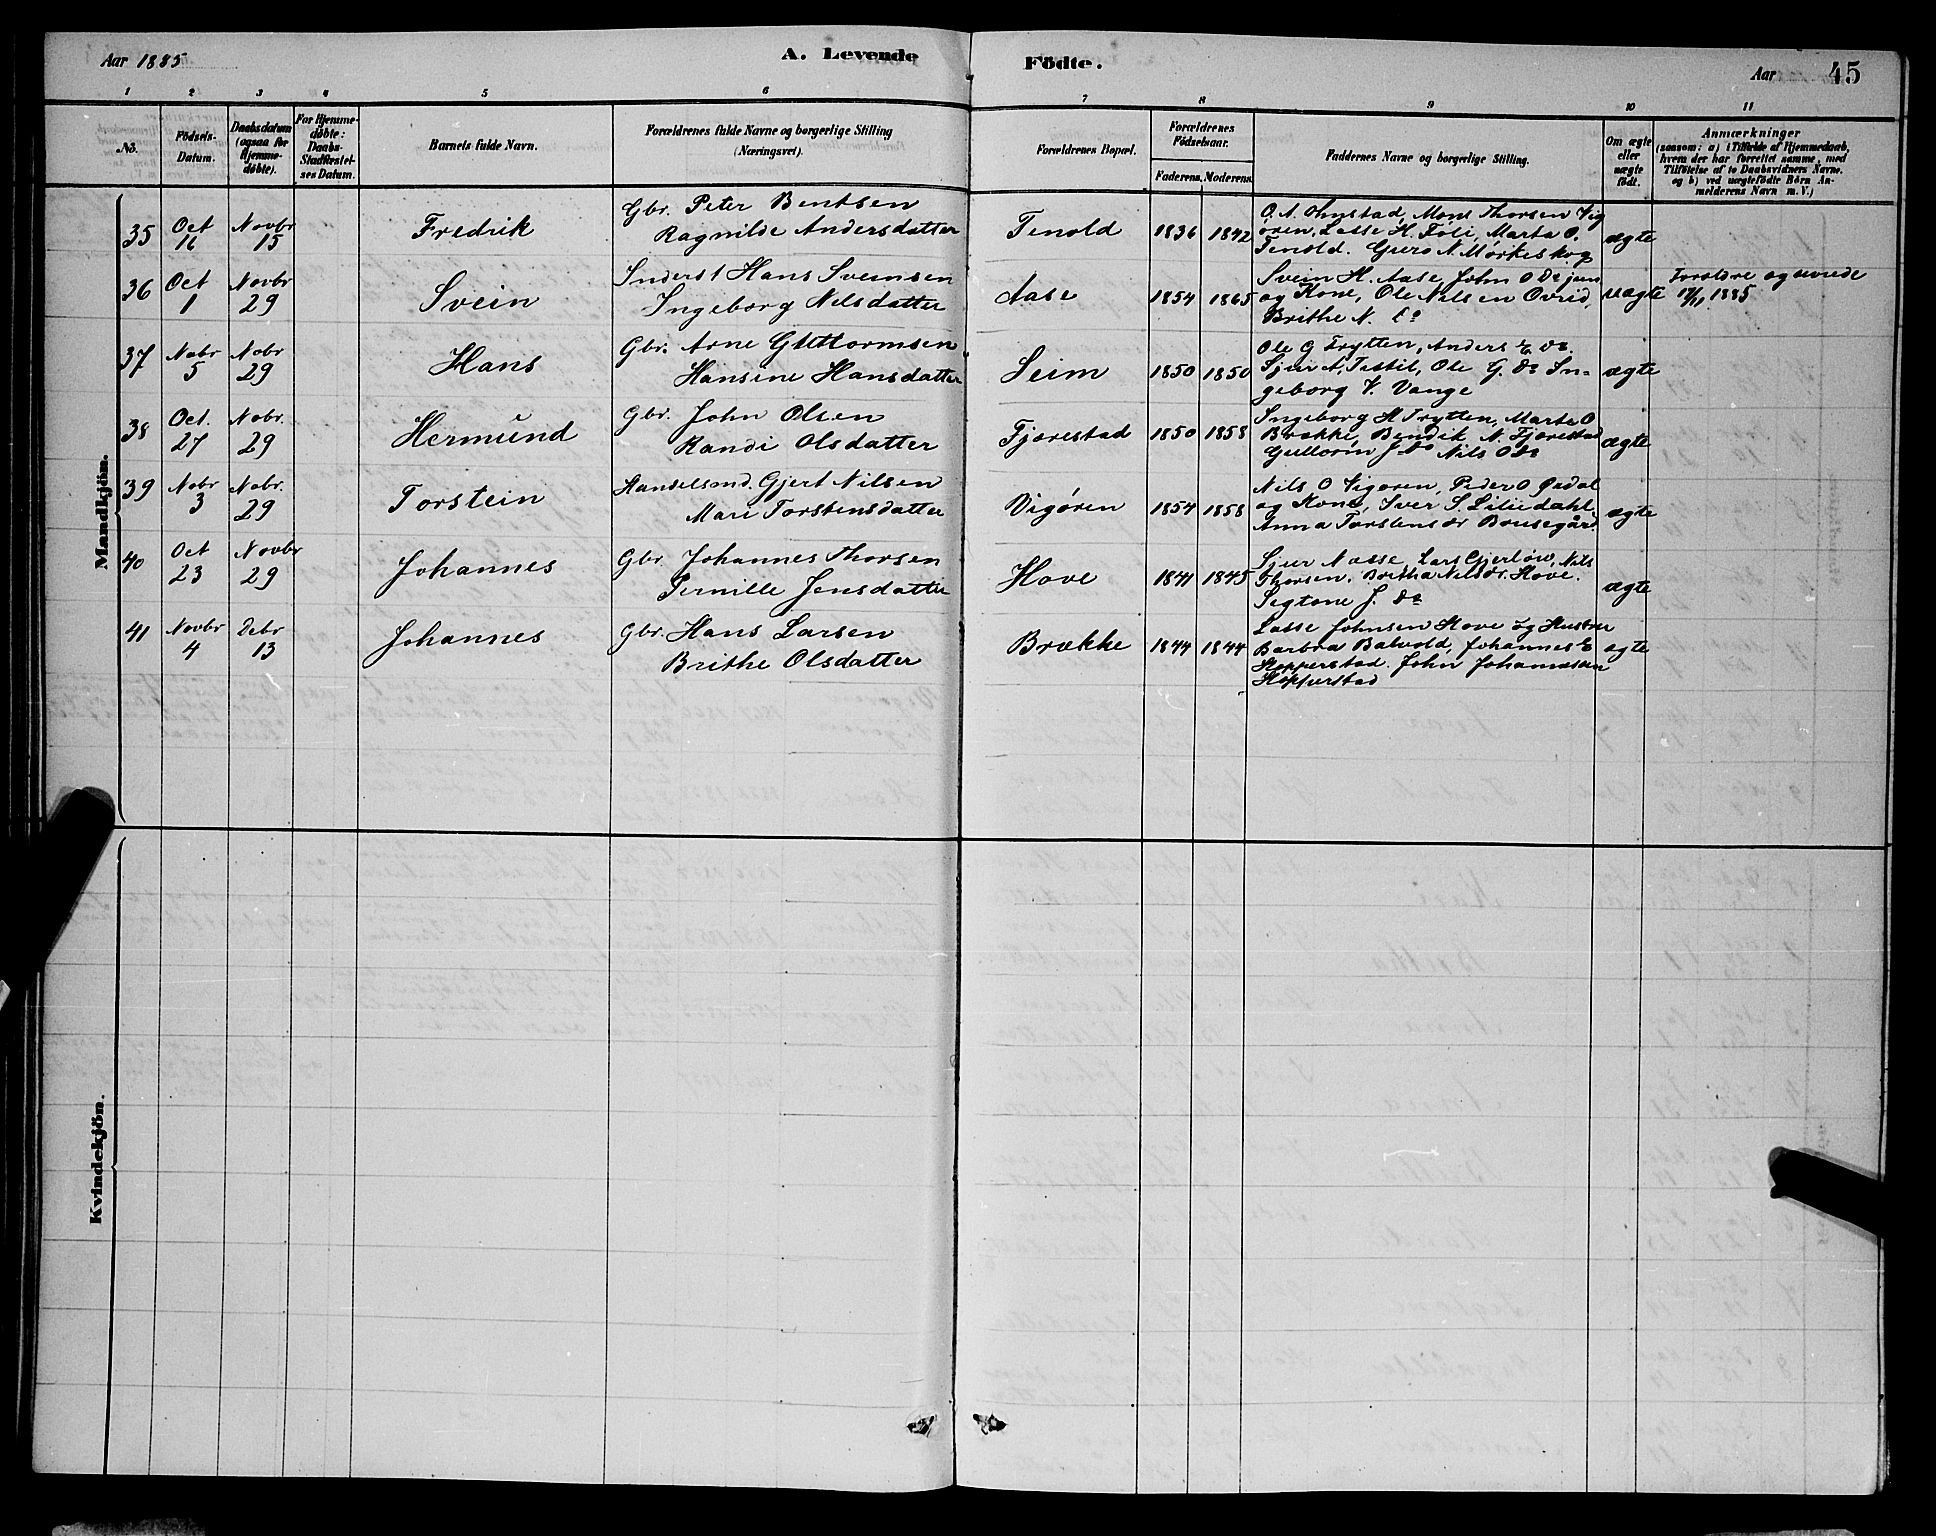 Aar 1885
A. Levende
Födte.
Aar
45
1 2 3 4 5 6 7 8 9 10 11
No.
Födsels-
Datum.
Daabsdatum
(ogsaa for
Hjemme-
døbte).
For Hjemme-
døbte:
Daabs-
Stadfæstel-
ses Datum.
Barnets fulde Navn.
Forældrenes fulde Navne og borgerlige Stilling
(Næringsvei).
Forældrenes Bopæl.
Forældrenes
Födselsaar.
Faderens. Moderens.
Faddernes Navne og borgerlige Stilling.
Om ægte
eller
uægte
født.
Anmærkninger
(saasom: a) i Tilfælde af Hjemmedaab,
hvem der har forrettet samme, med
Tilføielse af to Daabsvidners Navne.
og b) ved uægtefödte Börn An-
melderens Navn m. V.)
Mandkjön.
35 Oct 16 Novbr 15 Fredrik
Gbr. Peter Bentsen
Ragnilde Andersdatter
Tenold 1836 1842
O. A. Ohnstad, Mons Thorsen Vig
ören, Lasse H. Föli, Marta O.
Tenold. Guro N. Mörkeskog
ægte
36 Oct 1 Novbr 29 Svein
Inderst Hans Sveinsen
Ingeborg Nilsdatter
Aase 1854 1865
Svein H. Aase John O Do jun
og Kone, Ole Nilsen Ovrid,
Brithe N. Do
uægte
Foreldre 17/11 1885
37 Nobr 5 Nobr 29 Hans
Gbr. Arne Guttormsen
Hansine Hansdatter
Seim 1850 1850
Ole G Trytten, Anders E Do.
Sjur A. Tistil, Ole G. Do In-
geborg V. Vange
ægte
38 Oct. 27 Nobr. 29 Hermund
Gbr. John Olsen
Randi Olsdatter
Fjærestad 1850 1858
Ingeborg H Trytten, Marta O
Brække, Bendik N. Fjærestad
Gullorm J Do Nils O Do
ægte
39 Nobr 3 Nobr. 29 Torstein
Handelsmd. Gjert Nilsen
Mari Torstensdatter
Vigören 1854 1858
Nils O Vigören, Peder O Ördal
og Kone, Iver S. Liliedahl,
Anna Torstensdr Brusegård
ægte
40 Oct 23 Novbr 29 Johannes
Gbr. Johannes Thorsen
Pernille Jensdatter
Hove 1841 1845
Sjur Næsse, Lars Gjerlöw, Nils
Thorsen. Britha Nilsdr. Hove.
Sigtone J. Do
ægte
41 Novbr 4 Debr 13 Johannes
Gbr. Hans Larsen
Brithe Olsdatter
Brække 1844 1844
Lasse Johnsen Hove og Hustru
Barbra Balvold, Johannes E
Hopperstad. John Johannesen
Hopperstad
ægte
Kvindekjön.